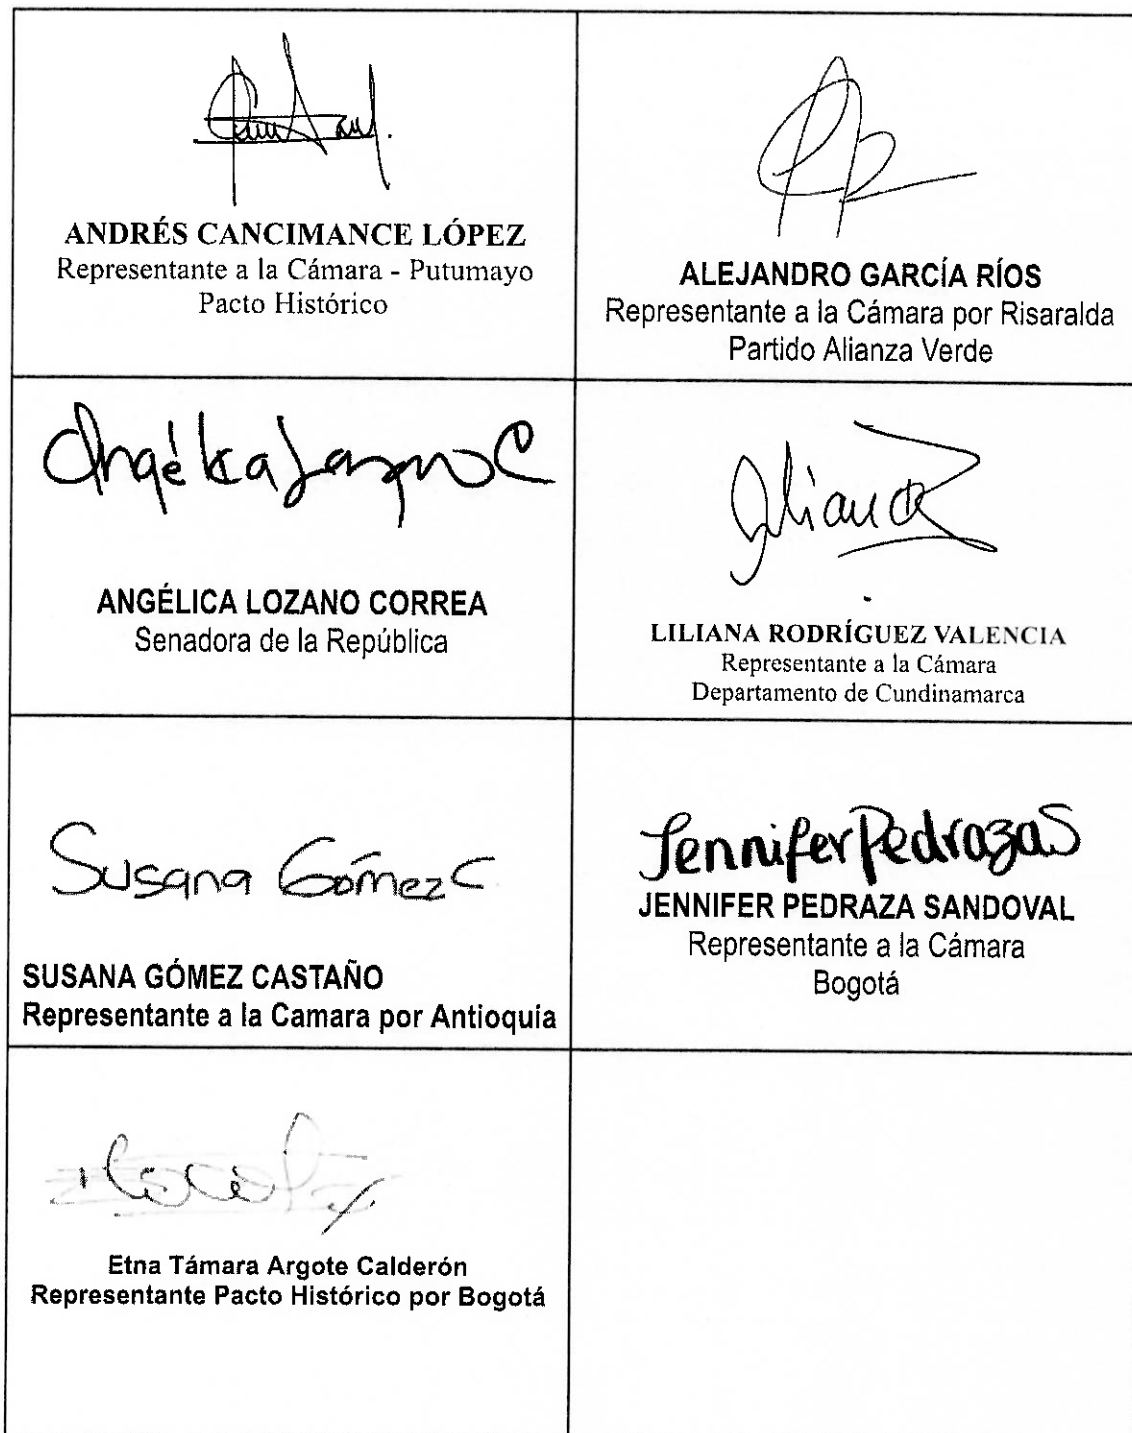 ANDRÉS CANCIMANCE LÓPEZ
Representante a la Cámara - Putumayo
Pacto Histórico
ALEJANDRO GARCÍA RÍOS
Representante a la Cámara por Risaralda
Partido Alianza Verde
Angélica Lozano C
ANGÉLICA LOZANO CORREA
Senadora de la República
Liliana R
LILIANA RODRÍGUEZ VALENCIA
Representante a la Cámara
Departamento de Cundinamarca
Susana Gómez C
SUSANA GÓMEZ CASTAÑO
Representante a la Camara por Antioquia
Jennifer Pedraza S
JENNIFER PEDRAZA SANDOVAL
Representante a la Cámara
Bogotá
Etna Támara Argote Calderón
Representante Pacto Histórico por Bogotá